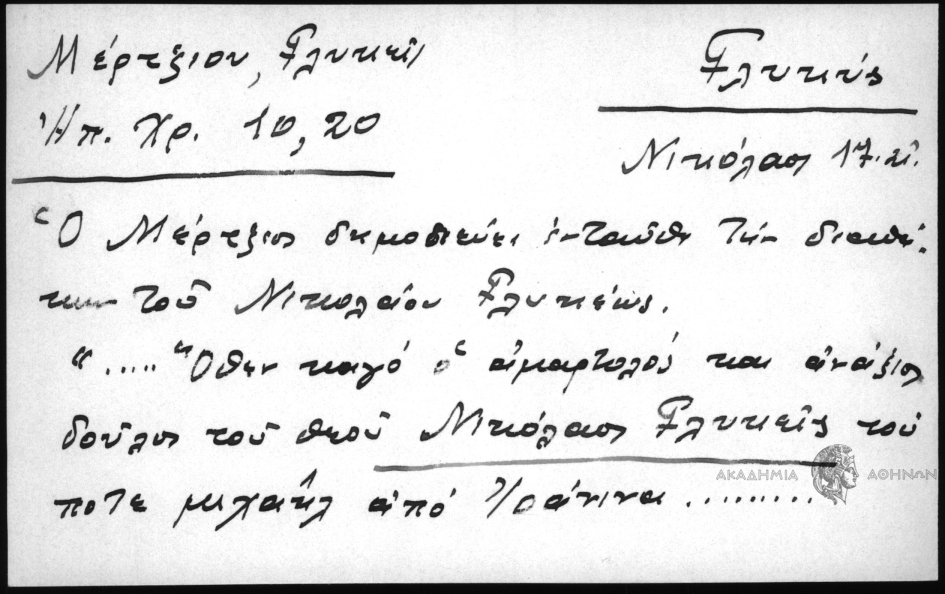 Μέρτζιου, Γλυκεῖς
Ἠπ. Χρ. 10, 20
Γλυκύς
Νικόλαος 17. αἰ.
Ὁ Μέρτζιος δημοσιεύει ἐνταῦθα τὴν διαθή-
κην τοῦ Νικολάου Γλυκέως.
"..... Ὅθεν καγό ὁ ἁμαρτολός και ἀνάξιος
δοῦλος τοῦ θεοῦ Νικόλαος Γλυκεῖς τοῦ
ποτε μιχαήλ ἀπό Ἰοάνινα .........
ΑΚΑΔΗΜΙΑ ΑΘΗΝΩΝ